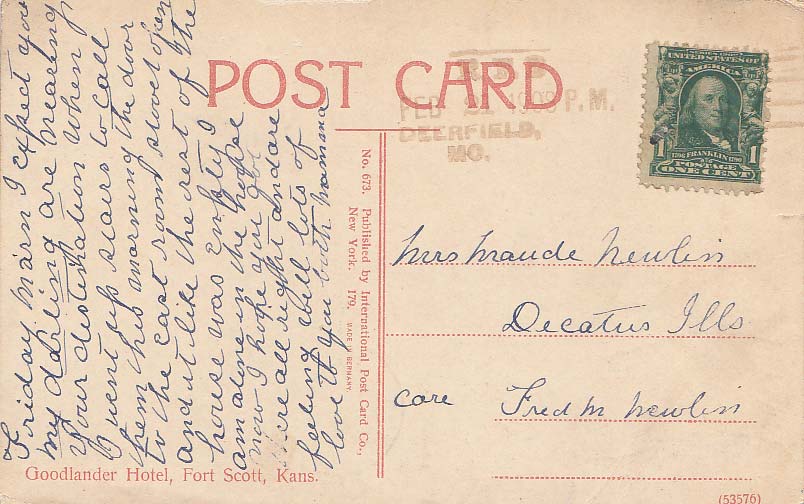 POST CARD
R.F.D.
FEB 21 P.M.
DEERFIELD,
MO.
UNITED STATES OF
AMERICA
1 FRANKLIN 1
1706 1790
POSTAGE
ONE CENT
Friday marn I expect you
my darling are nearing
your destination when
I went up stairs to call
them this marning the door
to the east room stood open
and it like the rest of the
house was empty I
am alone in the house
now I hope you got
there all right and are
feeling well lots of
love to you both mamma
No. 673. Published by International Post Card Co.,
New York. 179. MADE IN GERMANY.
Mrs Maude Newlin
Decatur Ills
care Fred M Newlin
Goodlander Hotel, Fort Scott, Kans.
(53576)